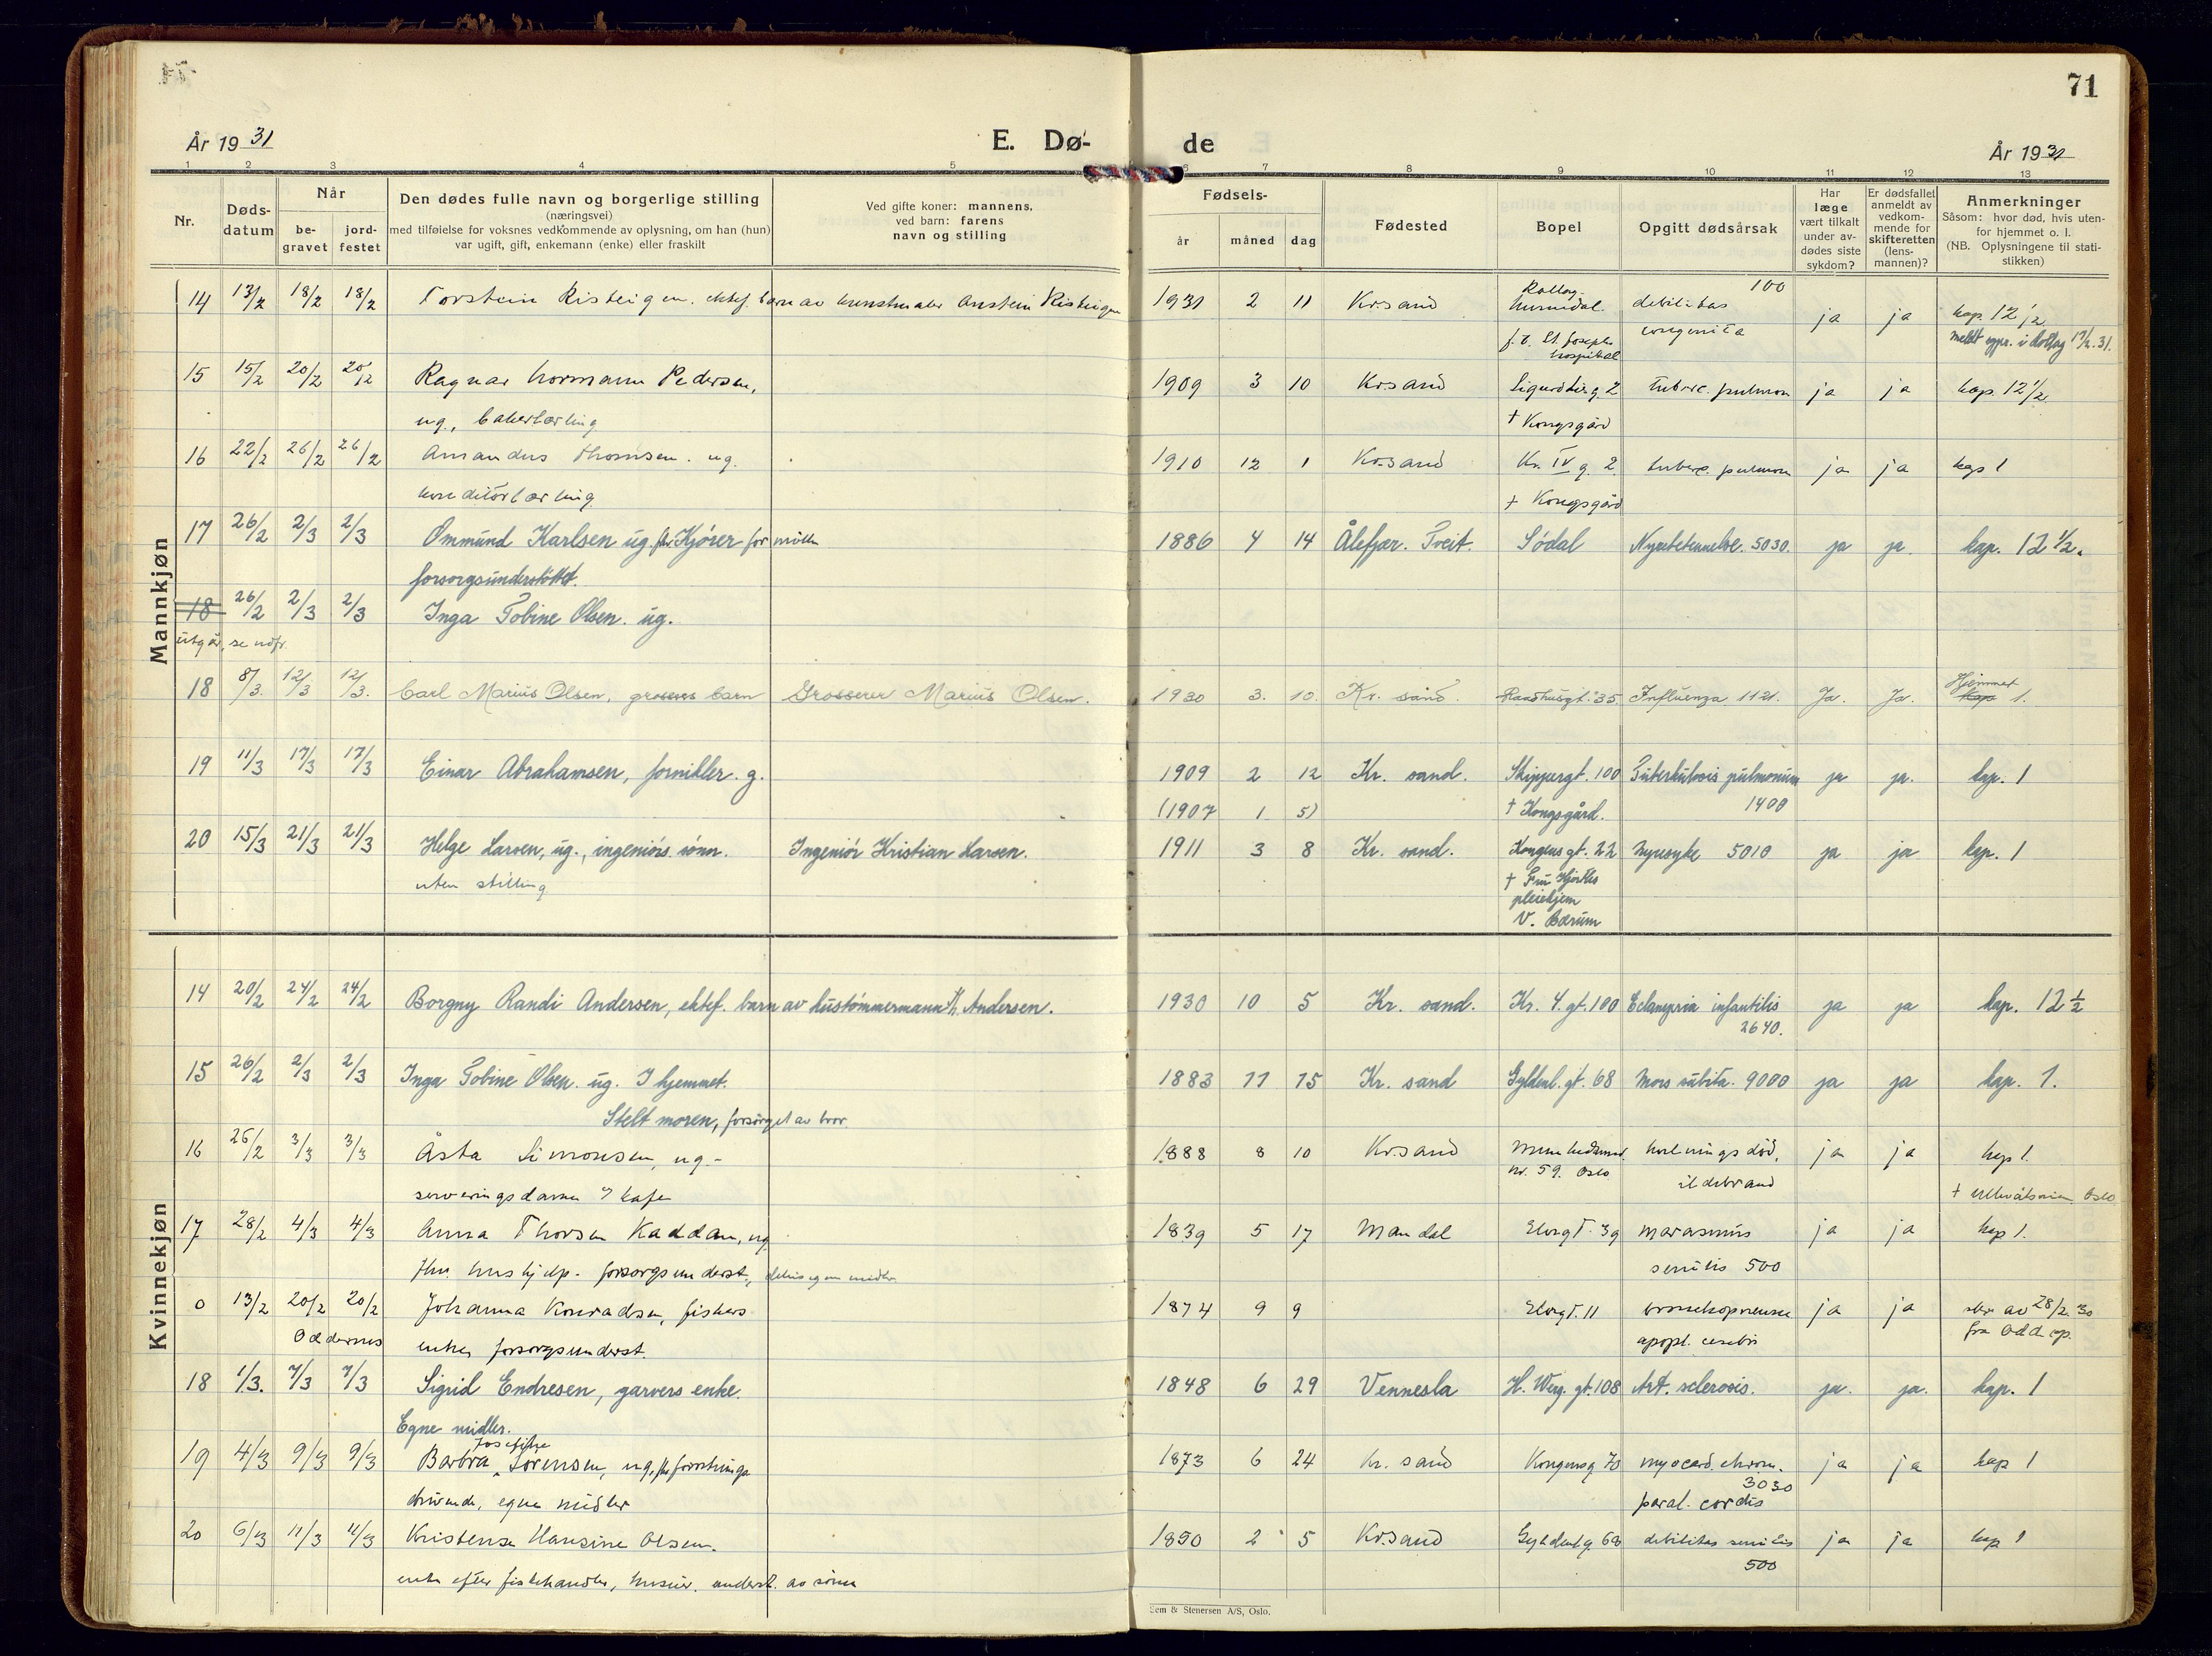 71
År 1931
E. Dø-
de
År 1931
1 2 3 4 5 6 7 8 9 10 11 12 13
Nr.
Døds-
datum
Når
be-
gravet
jord-
festet
Den dødes fulle navn og borgerlige stilling
(næringsvei)
med tilføielse for voksnes vedkommende av oplysning, om han (hun)
var ugift, gift, enkemann (enke) eller fraskilt
Ved gifte koner: mannens,
ved barn: farens
navn og stilling
Fødsels-
år måned dag
Fødested
Bopel
Opgitt dødsårsak
Har
læge
vært tilkalt
under av-
dødes siste
sykdom?
Er dødsfallet
anmeldt av
vedkom-
mende for
skifteretten
(lens-
mannen)?
Anmerkninger
Såsom: hvor død, hvis uten-
for hjemmet o. l.
(NB. Oplysningene til stati-
stikken)
Mannkjøn
14 13/2 18/2 18/2 Torstein Risteigen. ektef. barn av kunstmaler Anstein Risteigen 1931 2 11 Kr.sand Rollag, Numedal. debilitas 100 ja ja kap. 12 1/2
f. o. St. Josephs congenita meldt sogepr. i Rollag 17/2. 31.
hospital
15 15/2 20/2 20/2 Ragnar Normann Pedersen, 1909 3 10 Kr.sand tuberc. pulmon ja ja kap. 12 1/2
ug., bakerlærling † Kongsgård
16 22/2 26/2 26/2 Amandus Thomsen. ug. 1910 12 1 Kr.sand Kr. IV g. 2 tuberc. pulmon ja ja kap 1
konditorlærling † Kongsgård
17 26/2 2/3 2/3 Ommund Karlsen ug. fhv Kjører for møller 1886 4 14 Ålefjær. Tveit. Sødal Nyrebetennelse. 5030. ja ja. kap. 12 1/2.
forsorgsunderstøttet.
18 26/2 2/3 2/3 Inga Tobine Olsen. ug.
utgår, se ndfr.
18 8/3. 12/3 12/3. Carl Marius Olsen, grosserers barn Grosserer Marius Olsen. 1930 3. 10. Kr. sand. Raadhusgt. 35 Influenza 1121. Ja. Ja. Hjemmet
kap 1.
19 11/3 17/3 17/3 Einar Abrahamsen, fornikler. g. 1909 2 12 Kr. sand. Skippergt. 100 Tuberkulosis pulmonum ja ja. kap. 1
(1907 1 5) † Kongsgård. 1400
20 15/3 21/3 21/3 Helge Larsen, ug., ingeniørs sønn. Ingeniør Kristian Larsen. 1911 3 8 Kr. sand. Kongens gt. 22 Nyresyke 5010 ja ja kap. 1
uten stilling † Fru Hjorths
pleiehjem
V. Bærum
Kvinnekjøn
14 20/2 24/2 24/2 Borgny Randi Andersen, ektef. barn av hustømmermann Andersen. 1930 10 5 Kr. sand. Kr. 4. gt. 100 Eclampsia infantilis ja ja kap. 12 1/2
2640.
15 26/2 2/3 2/3 Inga Tobine Olsen. ug. I hjemmet. 1883 11 15 Kr. sand Gyldenl. gt. 68 Mors subita. 9000 ja ja kap. 1.
Stelt moren, forsørget av bror.
16 26/2 3/3 3/3 Åsta Simonsen, ug. - 1888 8 10 Kr.sand Munkedamsv. kvelningsdød, ja ja kap 1.
serveringsdame i kafe nr. 59. Oslo ildebrand † Ullevålsveien Oslo
17 28/2 4/3 4/3 Anna Thorsen Kaddan, ug 1839 5 17 Mandal Elvegt. 39 marasmus ja ja kap 1.
fhv. hushjelp. forsorgsunderst., delvis egne midler senilis 500
0 13/2 20/2 20/2 Johanna Konradsen, fiskers 1874 9 9 Elvegt. 11 bronchopneumoni ja ja skr. av 28/2 30
Oddernes enke, forsorgsunderst. apopl. cerebri fra Odd. sp.
18 1/3. 7/3 7/3 Sigrid Endresen, garvers enke. 1848 6 29 Vennesla H. Werg. gt. 108 Art. sclerosis. ja. ja. kap. 1
Egne midler.
19 4/3 9/3 9/3 Barbra Josefine Sørensen, ug, fhv forretnings 1873 6 24 Kr. sand Kongensg 70 myocard. chron. ja ja kap 1
drivende, egne midler 3030
paral. cordis
20 6/3 11/3 11/3 Kristense Hansine Olsen. 1850 2 5 Kr.sand Gyldenlg. 68 debilitas senilis ja ja kap 1
enke efter fiskehandler, husm. underst. av sønn 500
Sem & Stenersen A/S, Oslo.